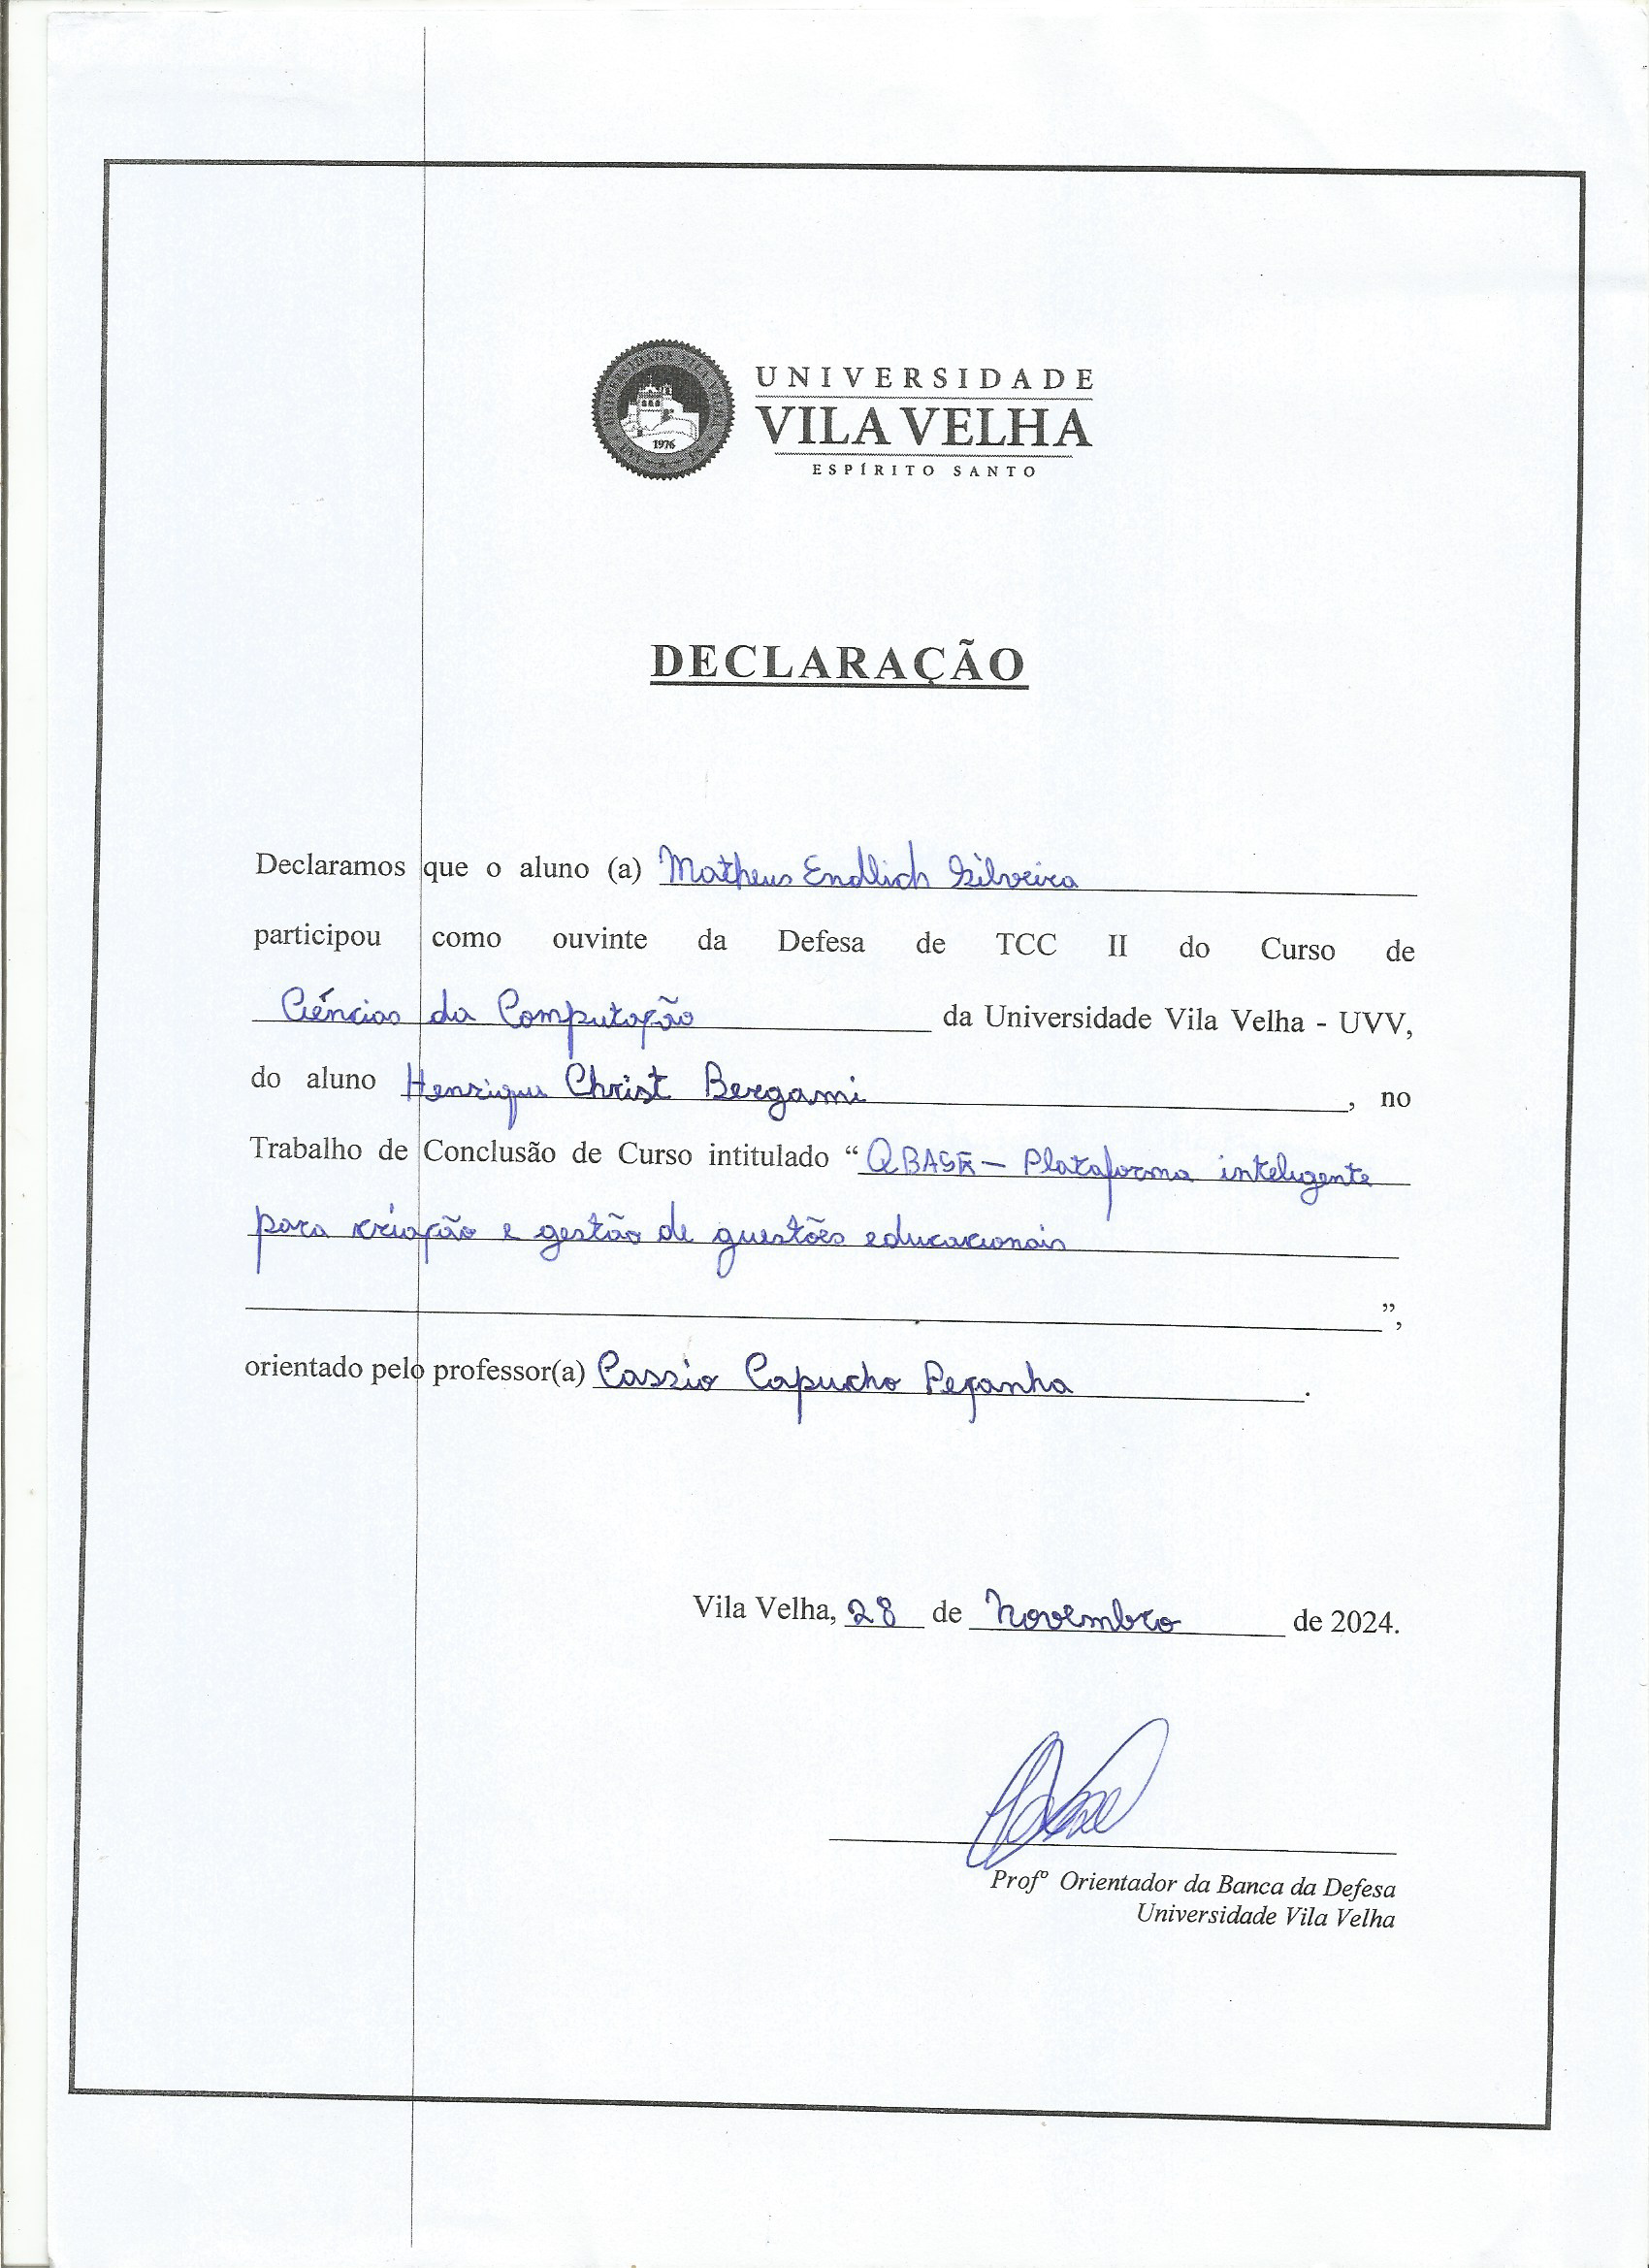 UNIVERSIDADE
VILA VELHA
ESPÍRITO SANTO
1976
DECLARAÇÃO
Declaramos que o aluno (a) Matheus Endlich Silveira
participou como ouvinte da Defesa de TCC II do Curso de
Ciências da Computação da Universidade Vila Velha - UVV,
do aluno Henrique Christ Bergami, no
Trabalho de Conclusão de Curso intitulado “QBASE – Plataforma inteligente
para criação e gestão de questões educacionais
”,
orientado pelo professor(a) Cassio Capucho Peçanha.
Vila Velha, 28 de Novembro de 2024.
Profº Orientador da Banca da Defesa
Universidade Vila Velha